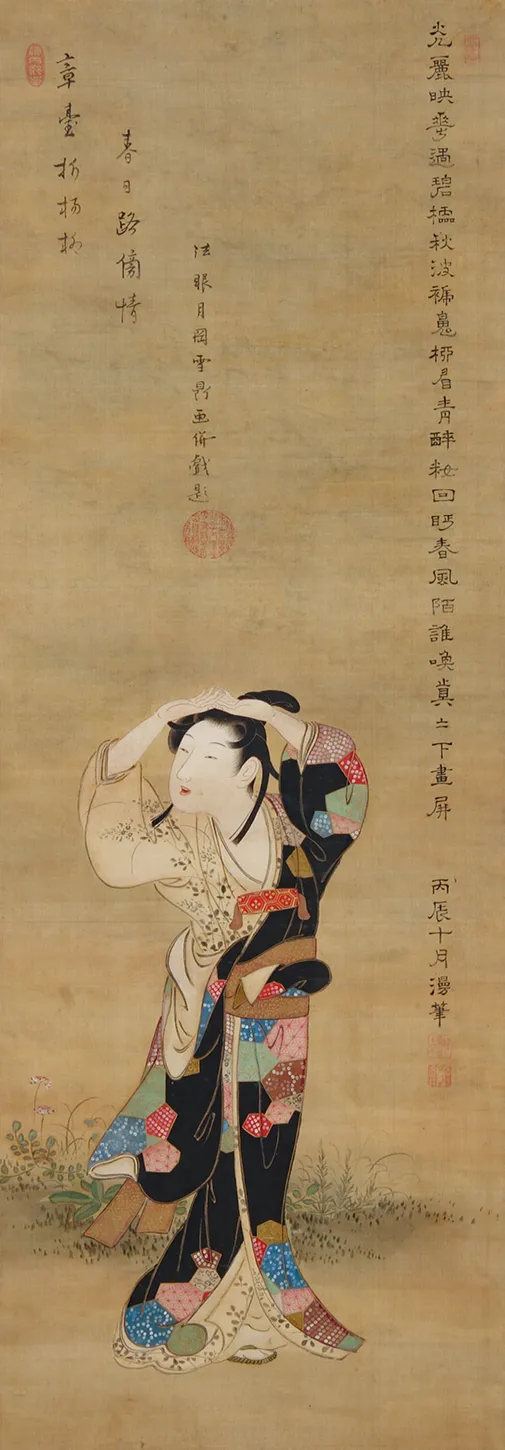 光麗映華遇碧櫺秋波褫魂柳眉青酔粧回眄春風陌誰喚眞々下畫屏
丙辰十月漫筆
章臺折楊柳
春日路傍情
法眼月岡雪鼎画併戯題